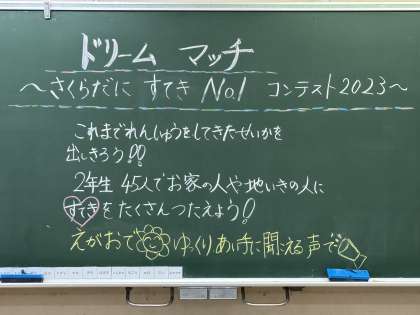 ドリーム マッチ
～さくらだに すてき No.1 コンテスト2023～
これまでれんしゅうをしてきたせいかを
出しきろう!!
2年生 45人でお家の人や地いきの人に
すてきをたくさんつたえよう!!
えがおで ゆっくりあい手に聞える声で